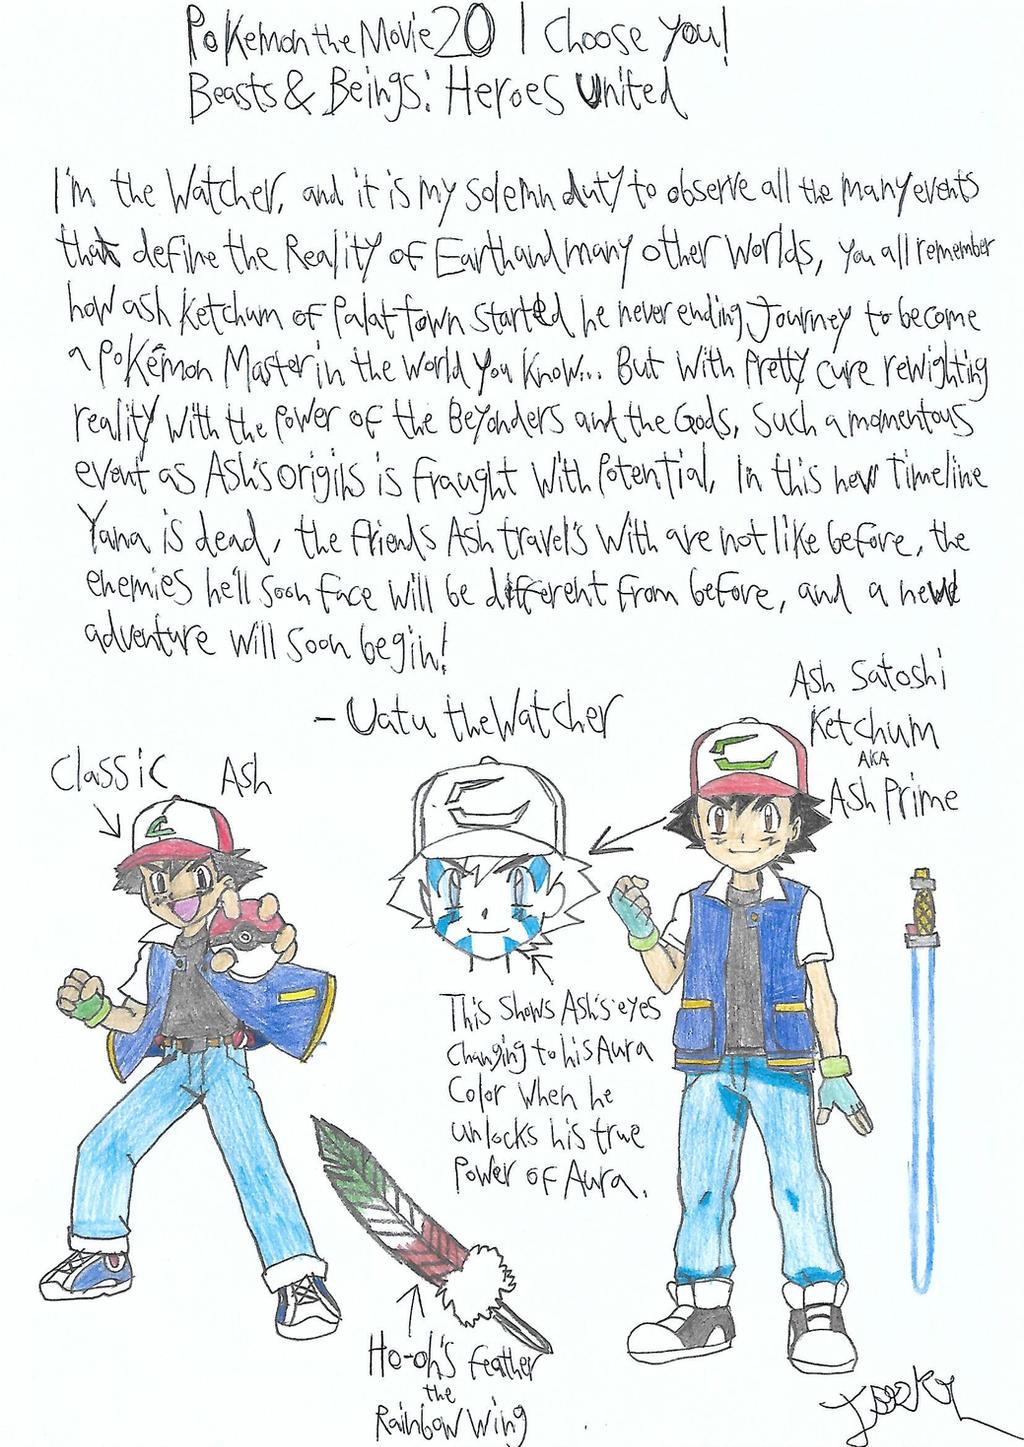 Pokemon the Movie 20 I Choose You!
Beasts & Beings: Heroes United
I'm the Watcher, and it is my solemn duty to observe all the many events
that define the Reality of Earth and many other Worlds, you all remember
how ash Ketchum of Palat Town started he never ending Journey to become
a Pokémon Master in the World You Know... But With Pretty cure rewighting
reality with the Power of the Beyonders and the Gods, Such a momentous
event as Ash's origins is fraught with Potential, In this new Timeline
Yana is dead, the friends Ash travel's with are not like before, the
enemies he'll soon face will be different from before, and a new
adventure will soon begin!
- Uatu the Watcher
Ash Satoshi
Ketchum
AKA
Ash Prime
Classic Ash
This Shows Ash's eyes
Changing to his Aura
Color when he
unlocks his true
Power of Aura.
Ho-oh's feather
the
Rainbow Wing